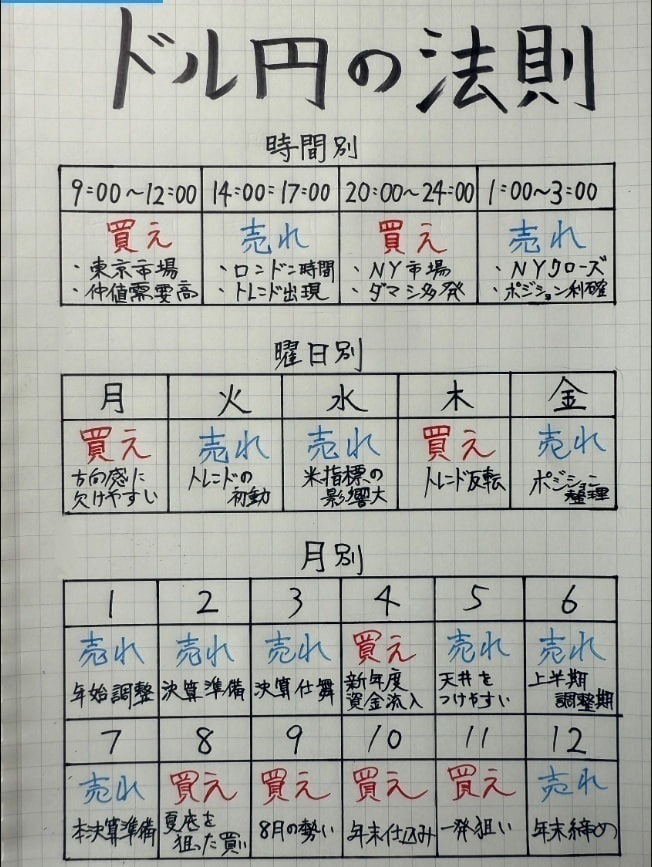 ドル円の法則
時間別
9:00～12:00 14:00:17:00 20:00～24:00 1:00～3:00
買え 売れ 買え 売れ
・東京市場 ・ロンドン時間 ・NY市場 ・NYクローズ
・仲値需要高 ・トレンド出現 ・ダマシ多発 ・ポジション利確
曜日別
月 火 水 木 金
買え 売れ 売れ 買え 売れ
方向感に トレンドの 米指標の トレンド反転 ポジション
欠けやすい 初動 影響大 整理
月別
1 2 3 4 5 6
売れ 売れ 売れ 買え 売れ 売れ
年始調整 決算準備 決算仕舞 新年度 天井を 上半期
資金流入 つけやすい 調整期
7 8 9 10 11 12
売れ 買え 買え 買え 買え 売れ
本決算準備 夏底を 8月の勢い 年末仕込み 一発狙い 年末締め
狙った買い